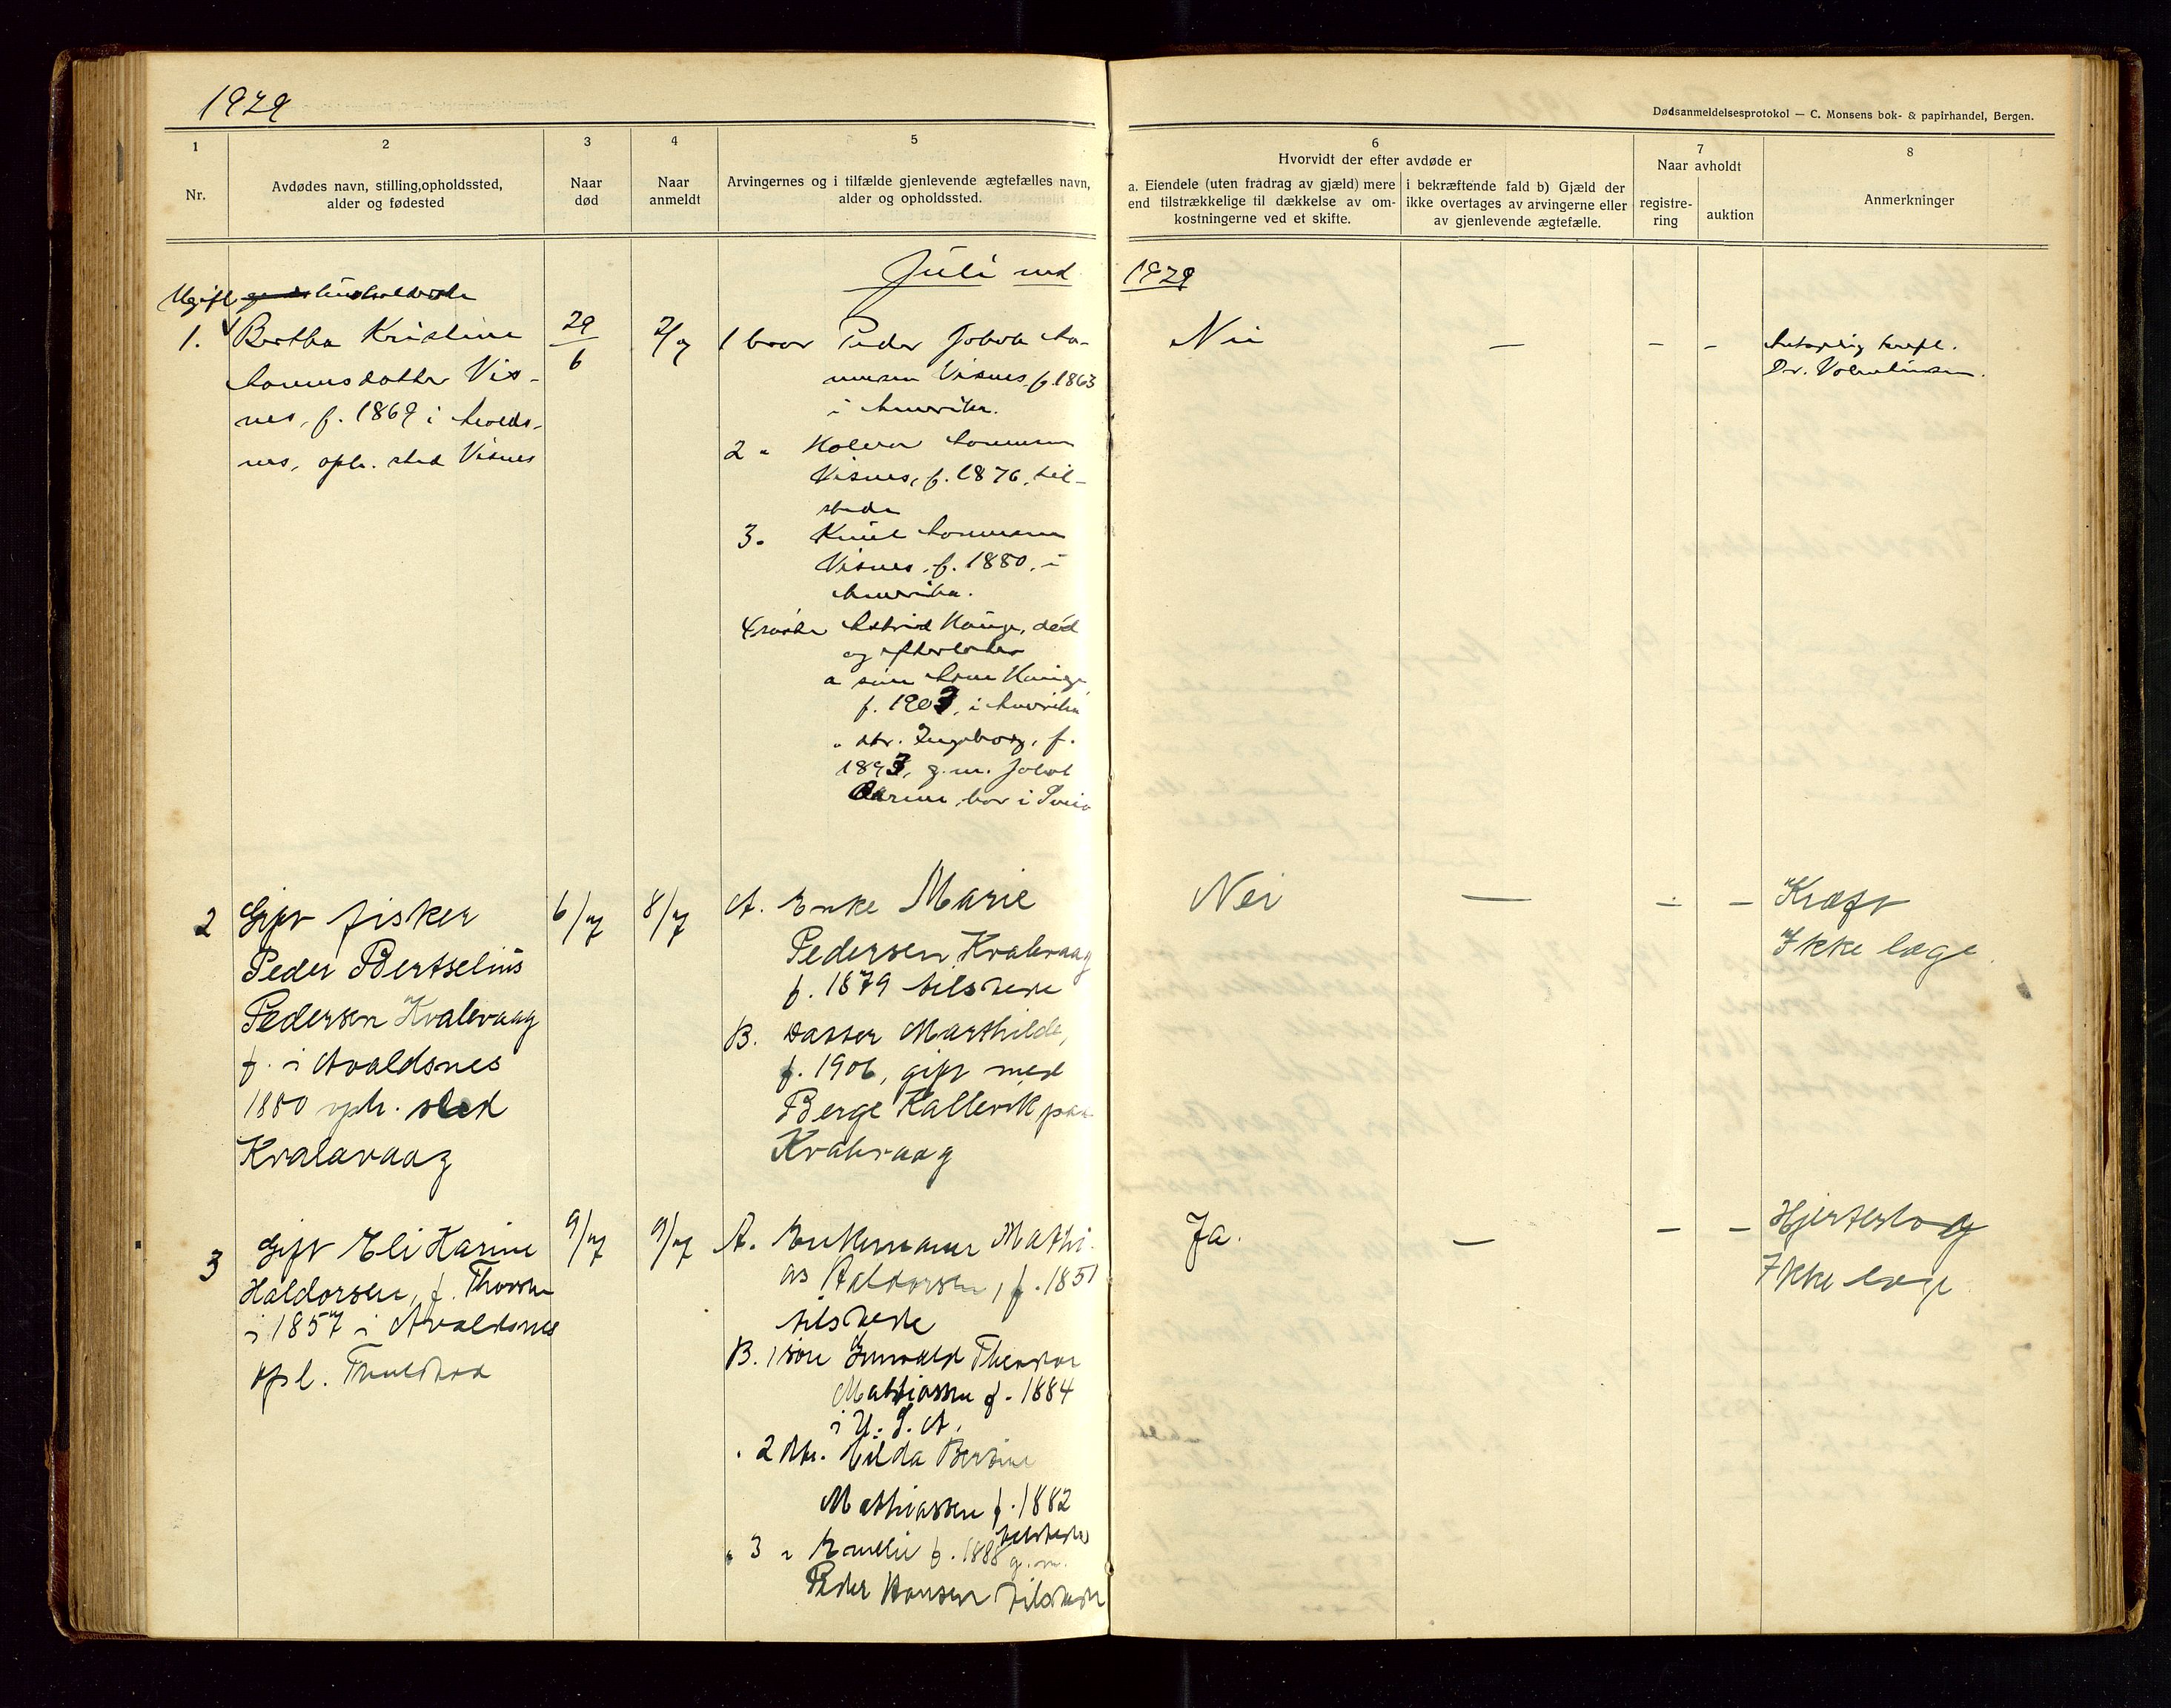 1929
Dødsanmeldelsesprotokol — C. Monsens bok- & papirhandel, Bergen.
1
2
3
4
5
6
7
8
Nr.
Avdødes navn, stilling, opholdssted,
alder og fødested
Naar
død
Naar
anmeldt
Arvingernes og i tilfælde gjenlevende ægtefælles navn,
alder og opholdssted.
Hvorvidt der efter avdøde er
a. Eiendele (uten fradrag av gjæld) mere
end tilstrækkelige til dækkelse av om-
kostningerne ved et skifte.
i bekræftende fald b) Gjæld der
ikke overtages av arvingerne eller
av gjenlevende ægtefælle.
Naar avholdt
registre-
ring
auktion
Anmerkninger
Juli md
1929
Ugift
1.
Bertha Kristine
Aamunsdatter Vis-
nes, f. 1869 i Avalds-
nes, oph. sted Visnes
29/6
2/7
1 bror Peder Jakob Aa-
munsen Visnes f. 1863
i Amerika.
2 " Aamunsen
Visnes, f. 1876, til-
stede
3. Knut Aamunsen
Visnes, f. 1880, i
Amerika.
4 søster Astrid Hauge, død
og efterlater
a søn Arne Hauge
f. 1903, i Amerika
" dtr. Ingeborg, f.
1893, g.m. Jakob
bor i Sveio
Nei
—
—
—
Antagelig kræft.
Dr. Valentinsen.
2
Gift fisker
Peder Bertselius
Pedersen Kvalevaag
f. i Avaldsnes
1880 oph. sted
Kvalavaag
6/7
8/7
A. Enke Marie
Pedersen Kvalevaag
f. 1879 tilstede
B. Datter Marthilde,
f. 1906, gift med
Berge Kallevik paa
Kvalevaag
Nei
—
—
—
Kræft
Ikke læge
3
Gift Eli Karine
Haldorsen, f.
i 1857 i Avaldsnes
opl.
9/7
9/7
A. Enkemann Mathi-
as Haldorsen, f. 1851
tilstede
B. 1 søn Theodor
Mathiassen f. 1884
i U. S. A.
" 2 dtr. Hilda Bertine
Mathiassen f. 1882
tilstede
" 3 " Emelie f. 1888 g. m.
Peder Hansen tilstede
Ja.
—
—
—
Hjerteslag
Ikke læge